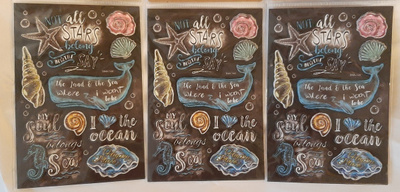 Not all
STARS
belong
to the
SKY
The Land & the Sea
where I want
to be
My
Soul
belongs
to the
Sea
I the
ocean
Not all
STARS
belong
to the
SKY
The Land & the Sea
where I want
to be
My
Soul
belongs
to the
Sea
I the
ocean
Not all
STARS
belong
to the
SKY
The Land & the Sea
where I want
to be
My
Soul
belongs
to the
Sea
I the
ocean